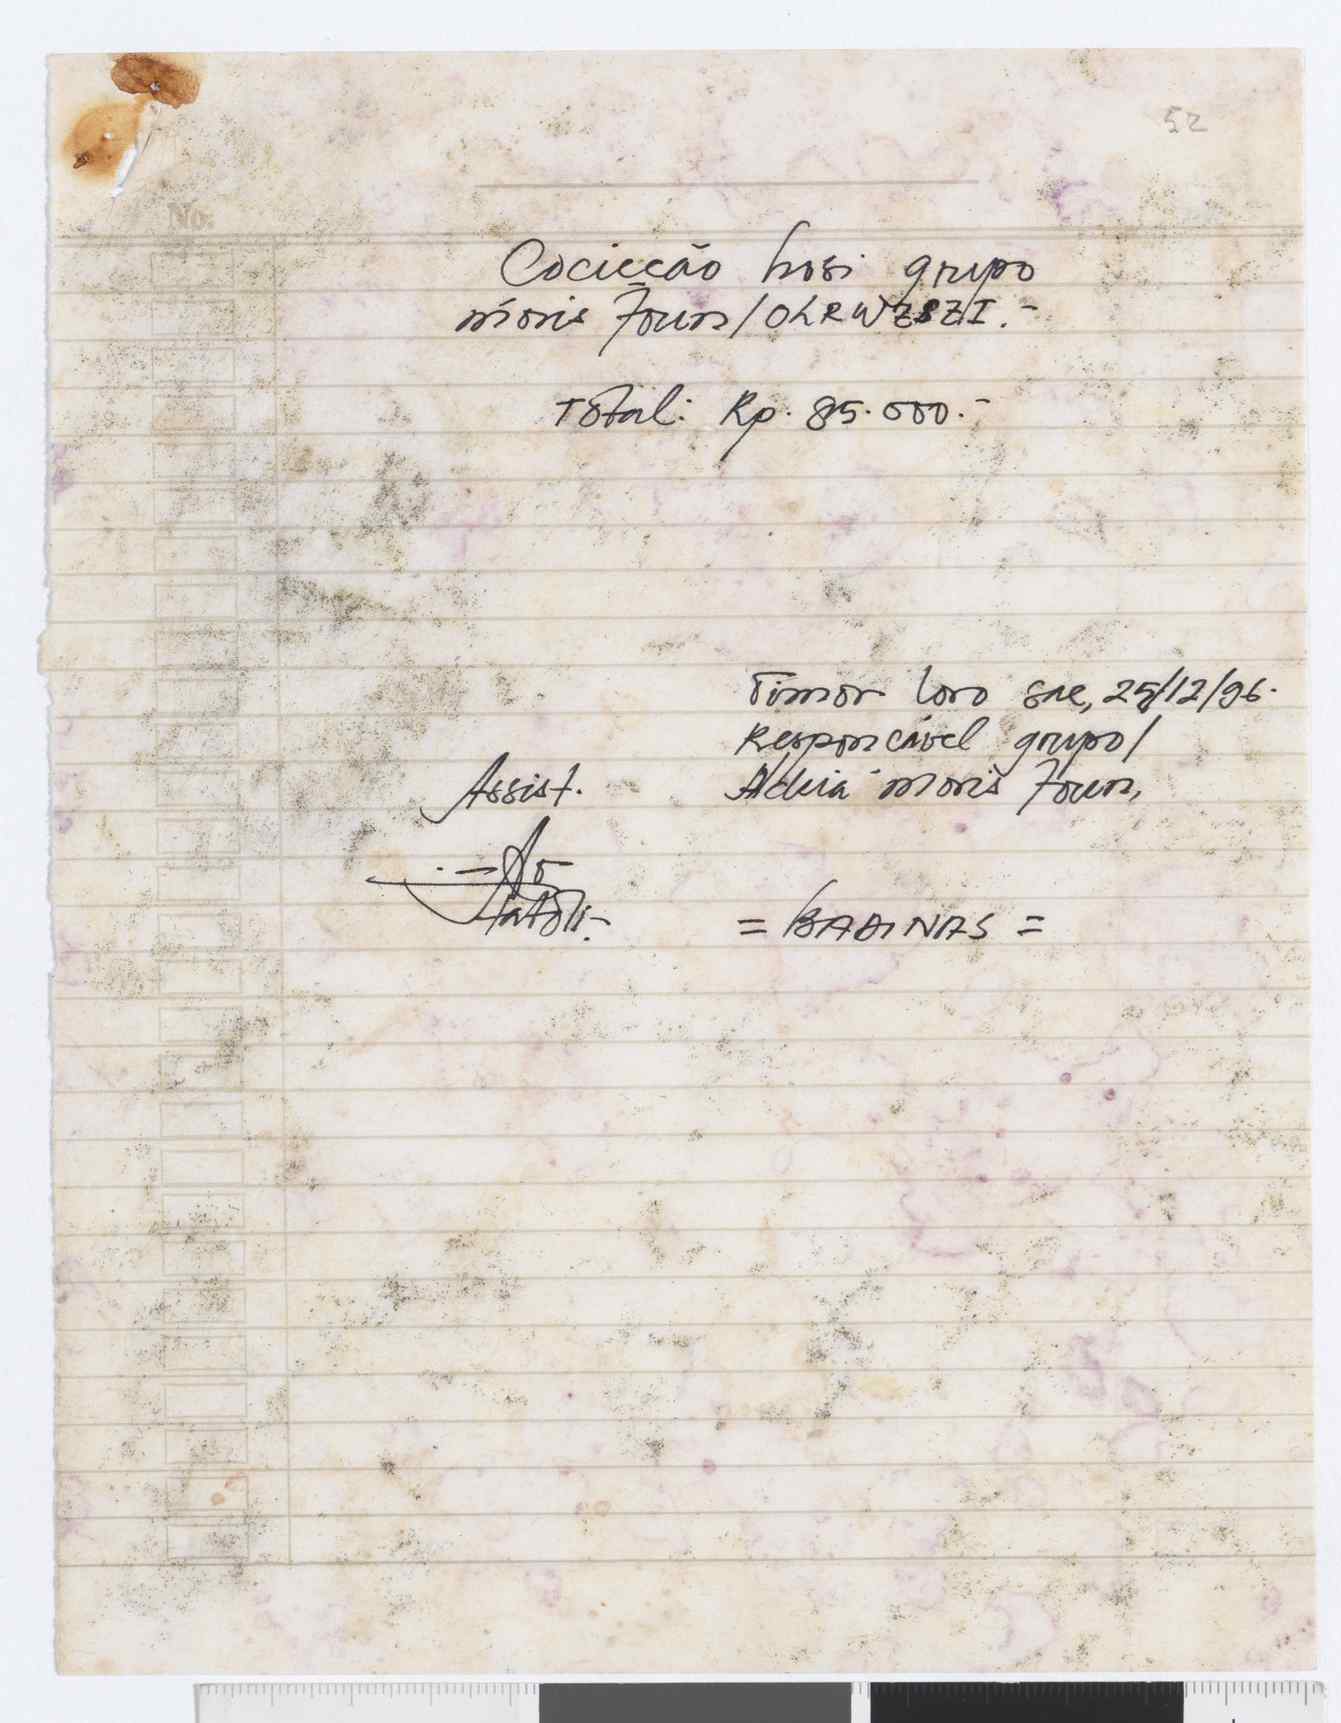 52
No.
Cociccão hosi grupo
moris Foun / OLRWZSZI.-
Total: Rp. 85.000.-
Timor loro sae, 25/12/96.
Responcável grupo/
Assist. Aldeia moris foun,
Tatoli.-
= BADINAS =